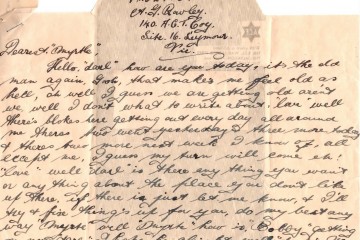 A.G. Rowley.
140. A.G.T. Coy
Site. 16. Seymour.
Vic
Dearest "Myrtle"
Hello, "darl" how are you today, it's the old
man again, Gosh, that makes me feel old as
hell, oh well I guess we are getting old aren't
we, well I don't what to write about, love well
there's blokes here getting out every day all around
me theres two went yesterday & three more today
& theres two more next week I know of, all
except me, I guess my turn will come eh.
"Love" well darl is there any thing you want
or any thing about the place you don't like
up there, if there is just let me know, & I'll
try & fix things up for you, do my best any
way "Myrtle" well "Myrtle" how is, Bobby getting